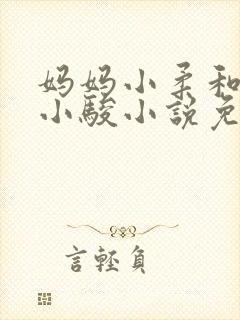 妈妈小柔和
小駿小說免
言輕負